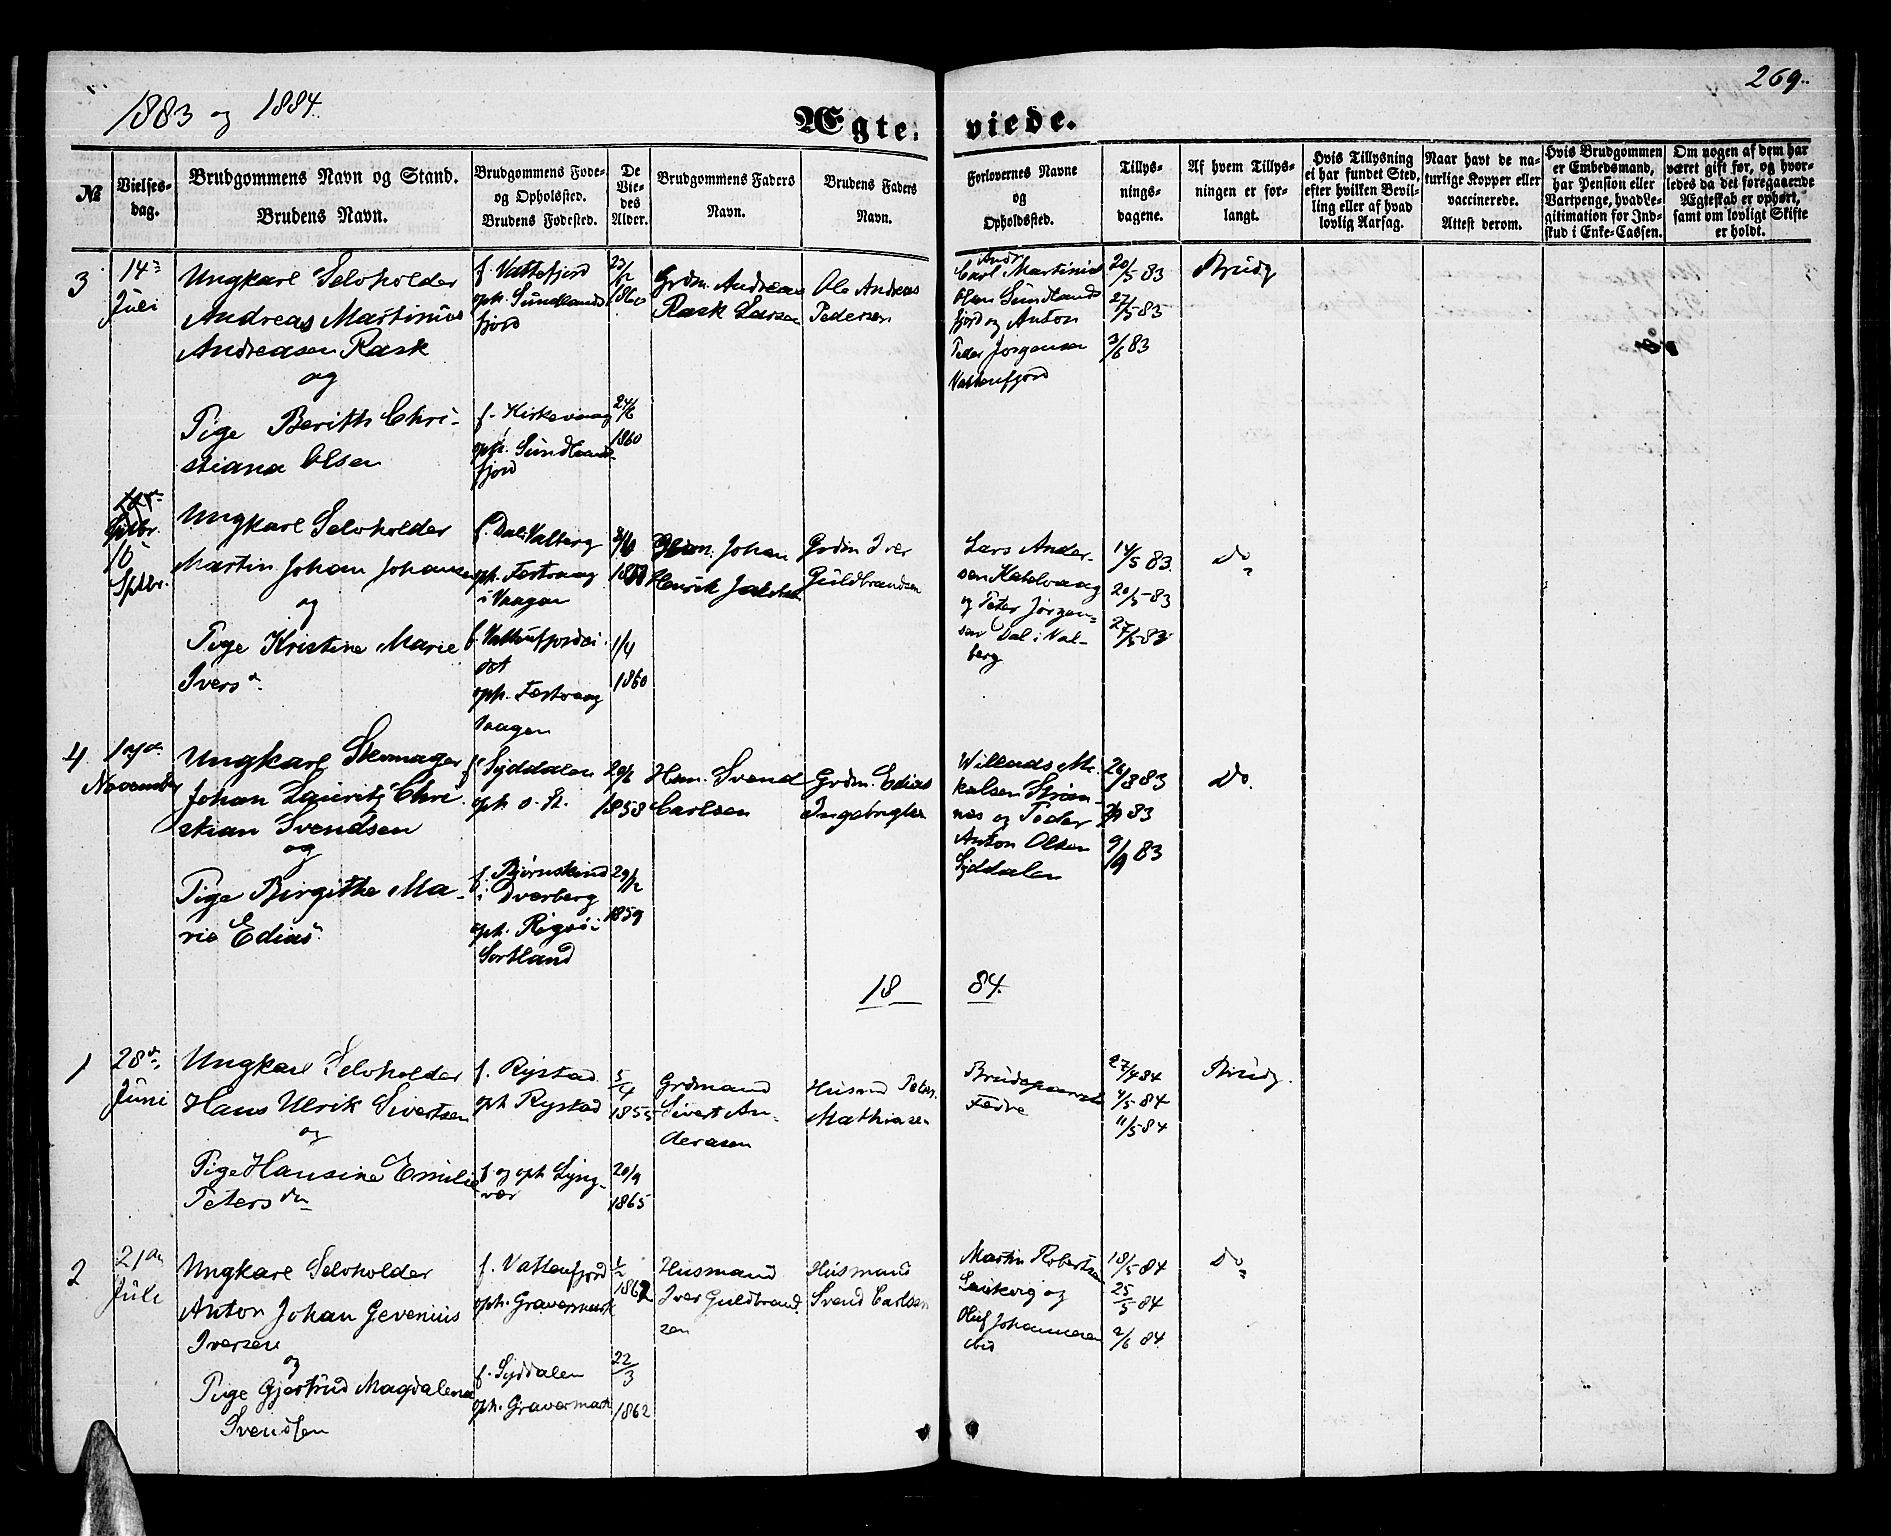 1883 og 1884.
269.
Ægte-
viede.
No
Vielses-
dag.
Brudgommens Navn og Stand.
Brudens Navn.
Brudgommens Føde-
og Opholssted.
Brudens Fødested.
De
Vie-
des
Alder.
Brudgommens Faders
Navn.
Brudens Faders
Navn.
Forlovernes Navne
og
Opholdssted.
Tillys-
nings-
dagene.
Af hvem Tillys-
ningen er for-
langt.
Hvis Tillysning
ei har fundet Sted,
efter hvilken Bevil-
ling eller af hvad
lovlig Aarsag.
Naar havt de na-
turlige Kopper eller
vaccinerede.
Attest derom.
Hvis Brudgommen
er Embedsmand,
har Pension eller
Vartpenge, hvad Le-
gitimation for Ind-
skud i Enke-Cassen.
Om nogen af dem har
været gift før, og hvor-
ledes da det foregaaende
Ægteskab er ophørt,
samt om lovligt Skifte
er holdt.
3
14
Juli
Ungkarl Selvholder
Andreas Martinius
Andreasen Rask
og
Pige Berith Chri-
stiana Olsen
f. Vattefjord
oph. Sundlands
fjord
1860
f. Kirkevaag
oph. Sundlands-
fjord
24/6
1860
Grdm. Andreas
Rask Larsen
Ole Andreas
Pedersen
Andr
Carl Martinius
Olsen Sundlands
fjord og Anton
Peder Jørgensen
Vattenfjord
20/5 83
27/5 83
3/6 83
Brudg
Septbr.
10
Sptbr.
Ungkarl Selvholder
Martin Johan Johansen
og
Pige Kristine Marie
Ivers d.
f. Dal i Valberg
oph. Festvaag
i Vaagan
f. Vattenfjord
oph. Festvaag
Vaagen
1/4
1860
Johan
Henrik
Grdm Iver
Guldbrandsen
Lars Ander-
sen
og Peter Jørgen-
sen Dal i Val-
berg
14/5 83.
20/5 83
27/5 83
Do
4
November
Ungkarl Skomager
Johan Lauritz Chri
stian Svendsen
og
Pige Birgithe Ma-
rie Edias
f. Syddalen
oph. o. St.
1858
f. Bjørnskind
i Dverberg
oph. i
Sortland
29/12
1859
Hsm. Svend
Carlsen
Grdm. Edias
Ingebrigtsen
Willads Mi
kalsen Stran-
nes og Peder
Anton Olsen
Syddalen
26/8 83
83
9/9 83
Do.
18
84.
1
28 d.
Juni
Ungkarl Selvholder
Hans Ulrik Sivertsen
og
Pige Hansine Emilie
Peters dtr
f. Rystad
oph Rystad
5/4
1855
f. og oph Lyng-
vær
20/9
1865
Grdmand
Sivert An-
derasen
Husmd Peter
Mathiasen
Brudeparrets
Fædre
27/4 84
4/5 84
11/5 84
Brudg.
2
21
Juli
Ungkarl Selvholder
Anton Johan Gevenius
Iversen
og
Pige Gjertrud Magdalena
Svendsen
f. Vattenfjord
oph. Gravermark
1/2
1862
f. Syddalen
oph. Gravermark
22/3
1862
Husmand
Iver Guldbrand
sen
Husmand
Svend Carlsen
Martin Robertsen
Laukvig og
Oluf Johannesen
ibid
18/5 84
25/5 84
2/6 84
Do